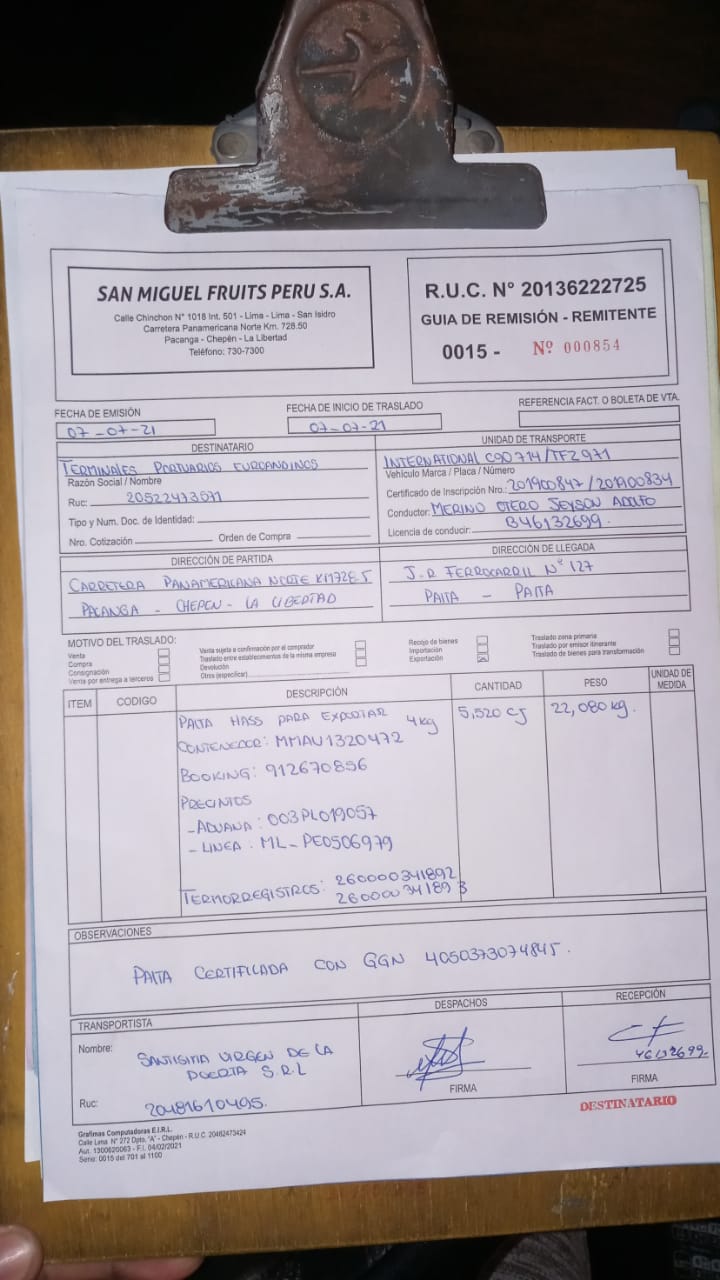 SAN MIGUEL FRUITS PERU S.A.
Calle Chinchon N° 1018 Int. 501 - Lima - Lima - San Isidro
Carretera Panamericana Norte Km. 728.50
Pacanga - Chepén - La Libertad
Teléfono: 730-7300
R.U.C. N° 20136222725
GUIA DE REMISIÓN - REMITENTE
0015 - Nº 000854
FECHA DE EMISIÓN
07-07-21
FECHA DE INICIO DE TRASLADO
07-07-21
REFERENCIA FACT. O BOLETA DE VTA.
DESTINATARIO
TERMINALES PORTUARIOS EUROANDINOS
Razón Social / Nombre
Ruc: 20522473571
Tipo y Num. Doc. de Identidad:
Nro. Cotización Orden de Compra
UNIDAD DE TRANSPORTE
INTERNATIONAL C90714/TFZ971
Vehículo Marca / Placa / Número
Certificado de Inscripción Nro.: 201900847/201900834
Conductor: MERINO OTERO JEYSON ADOLFO
Licencia de conducir: B46132699.
DIRECCIÓN DE PARTIDA
CARRETERA PANAMERICANA NORTE KM728.5
PACANGA - CHEPEN - LA LIBERTAD
DIRECCIÓN DE LLEGADA
J.R FERROCARRIL N° 127
PAITA - PAITA
MOTIVO DEL TRASLADO:
Venta
Compra
Consignación
Venta por entrega a terceros
Venta sujeta a confirmación por el comprador
Traslado entre establecimientos de la misma empresa
Devolución
Otros (especificar)
Recojo de bienes
Importación
Exportación
Traslado zona primaria
Traslado por emisor itinerante
Traslado de bienes para transformación
ITEM CODIGO DESCRIPCIÓN CANTIDAD PESO UNIDAD DE MEDIDA
PALTA HASS PARA EXPORTAR 4kg 5,520 CJ 22,080 kg.
CONTENEDOR: MMAU1320472
BOOKING: 912670856
PRECINTOS
- ADUANA: 003PL019057
- LINEA: ML-PE0506979
TERMORREGISTROS: 260000341892
260000341893
OBSERVACIONES
PALTA CERTIFICADA CON GGN 4050373074845.
TRANSPORTISTA
Nombre: SANTISIMA VIRGEN DE LA
PUERTA S.R.L
Ruc: 20481610495.
DESPACHOS
FIRMA
RECEPCIÓN
46132699.
FIRMA
DESTINATARIO
Grafimas Computadoras E.I.R.L.
Calle Lima N° 272 Dpto. "A" - Chepén - R.U.C. 20482473424
Aut. 1300620063 - F.I. 04/02/2021
Serie: 0015 del 701 al 1100